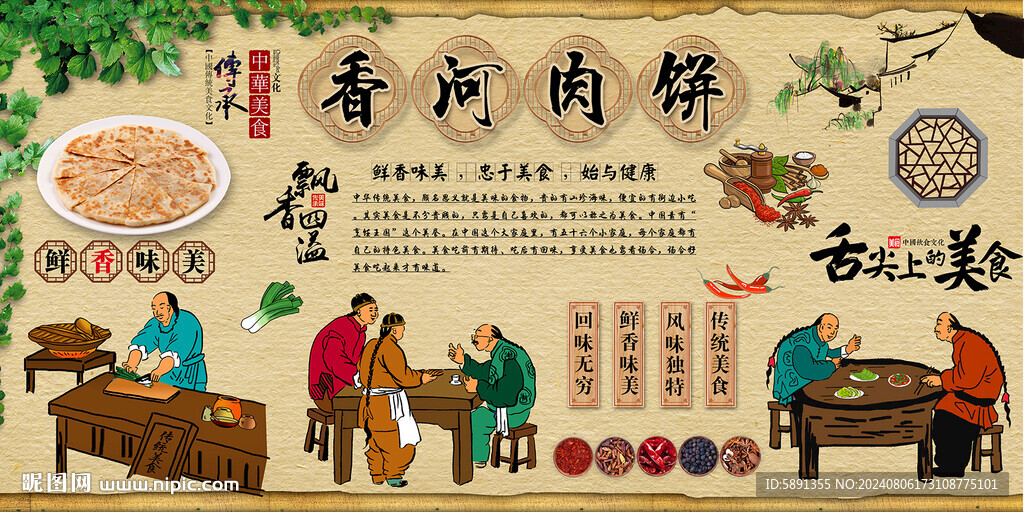 香河肉饼
【中國傳統美食文化】
傳承
中華美食
飘香四溢
鲜香味美，忠于美食，始与健康
中华传统美食，顾名思义就是美味的食物，贵的有山珍海味，便宜的有街边小吃
。其实美食是不分贵贱的，只需是自己喜欢的，都可以称之为美食。中国素有“
烹饪王国”这个美誉。在中国这个大家庭里，有五十六个小家庭，每个家庭都有
自己的特色美食。美食吃前有期待，吃后有回味，享受美食也需看场合，场合好
美食吃起来才有味道。
鲜香味美
美食
中國飲食文化
舌尖上的美食
回味无穷
鲜香味美
风味独特
传统美食
传统美食
昵图网 www.nipic.com
ID:5891355 NO:20240806173108775101